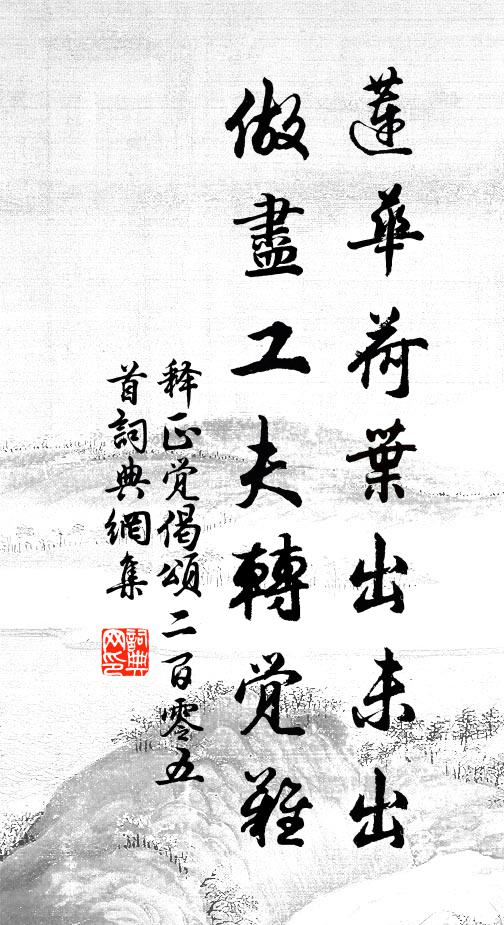 蓮華荷葉出未出
做盡工夫轉覚難
释正觉偈頌二百零五
首詞典網集
詞典
网印